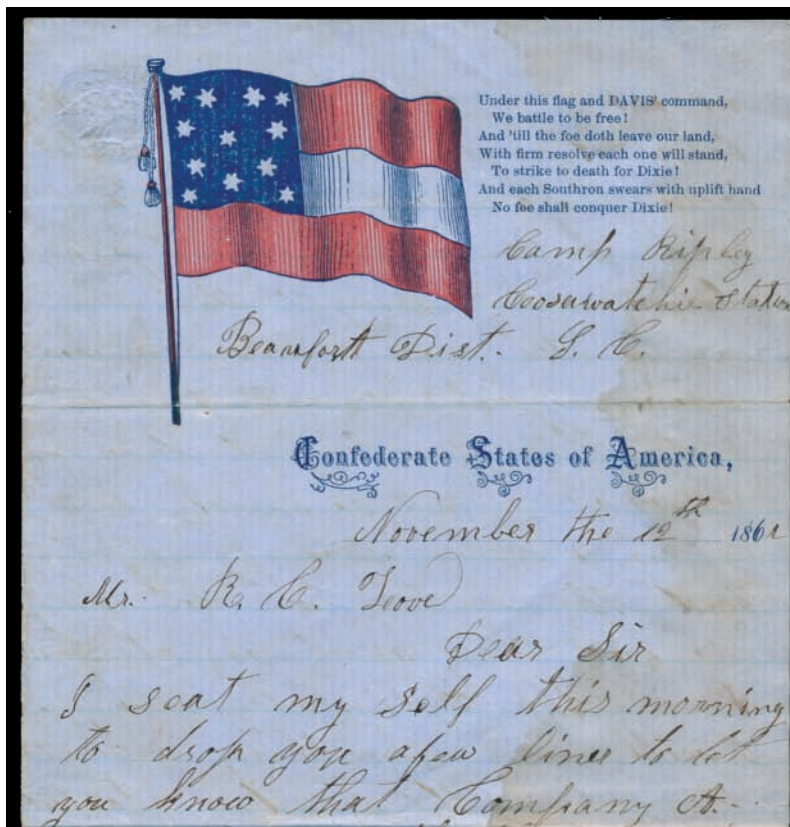 Under this flag and DAVIS' command,
We battle to be free!
And 'till the foe doth leave our land,
With firm resolve each one will stand,
To strike to death for Dixie!
And each Southron swears with uplift hand
No foe shall conquer Dixie!
Camp Ripley
Coosawatchie Station
Beaufort Dist. S. C.
Confederate States of America,
November the 12th 1861
Mr. R. C.
Dear Sir
I seat my self this morning
to drop you a few lines to let
you know that Company A.